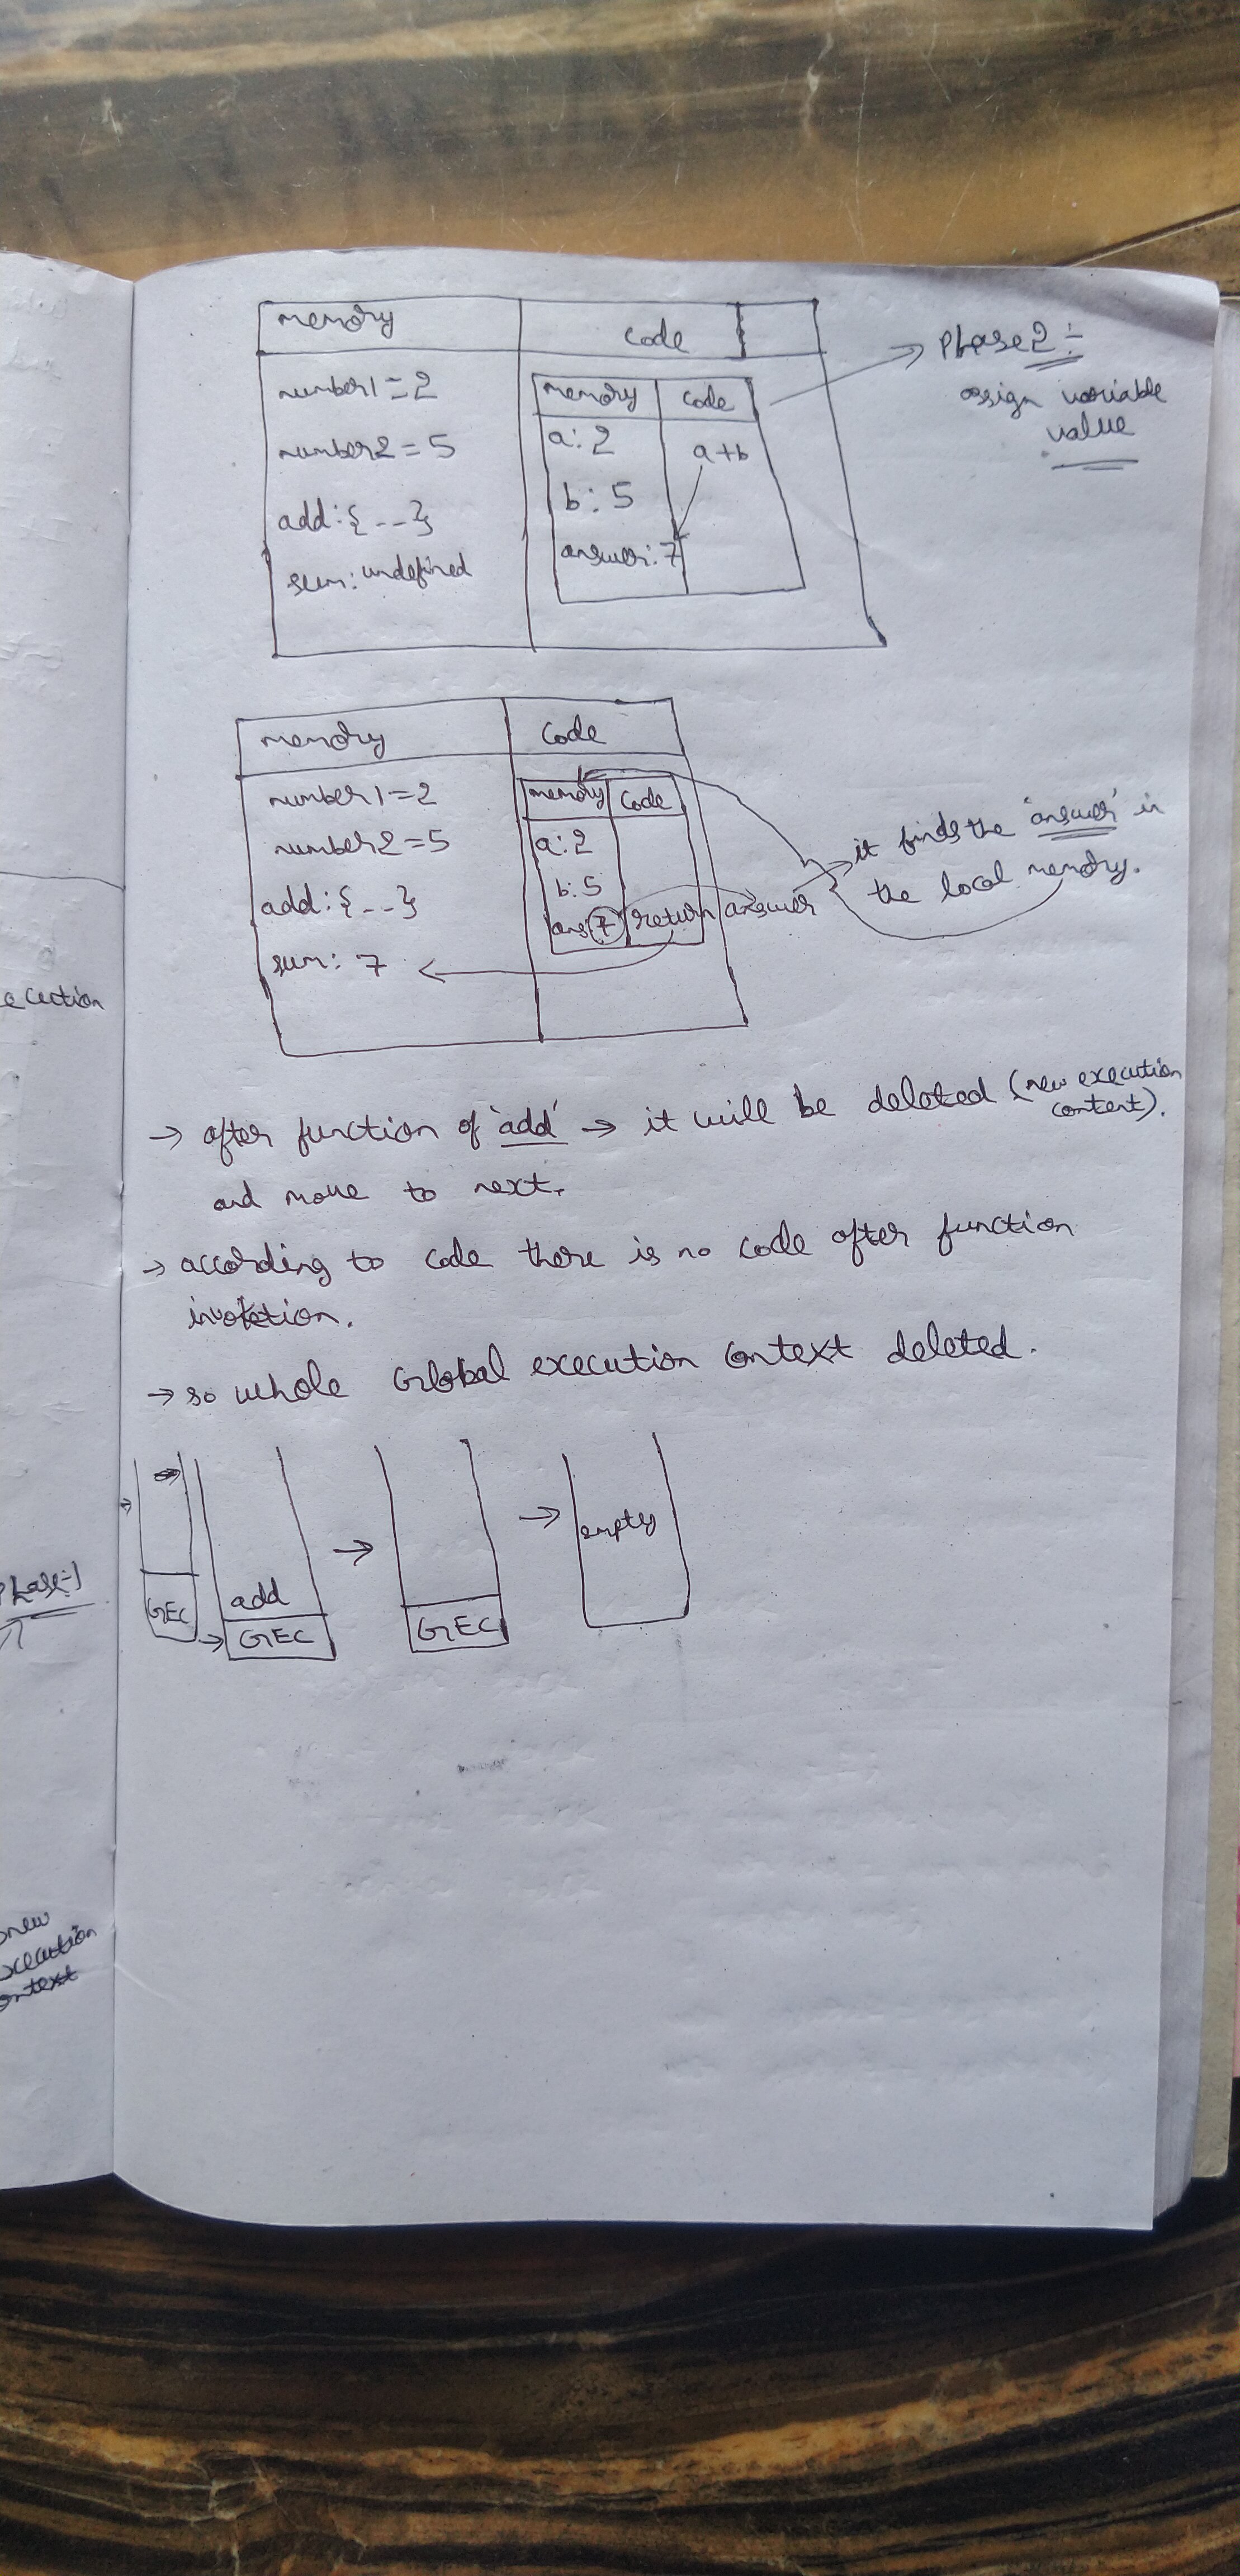 memory
code
number1=2
number2=5
add:{--}
sum: undefined
memory
code
a:2
a+b
b:5
answer:7
Phase2:-
assign variable
value
memory
code
number1=2
number2=5
add:{--}
sum: 7
memory
code
a:2
b:5
ans 7
return answer
it finds the 'answer' in
the local memory.
→ after function of 'add' → it will be deleted (new execution
context).
and move to next.
→ according to code there is no code after function
→ so whole Global execution context deleted.
GEC
add
GEC
GEC
empty
ecution
Phase:-1
new
xecution
ontext